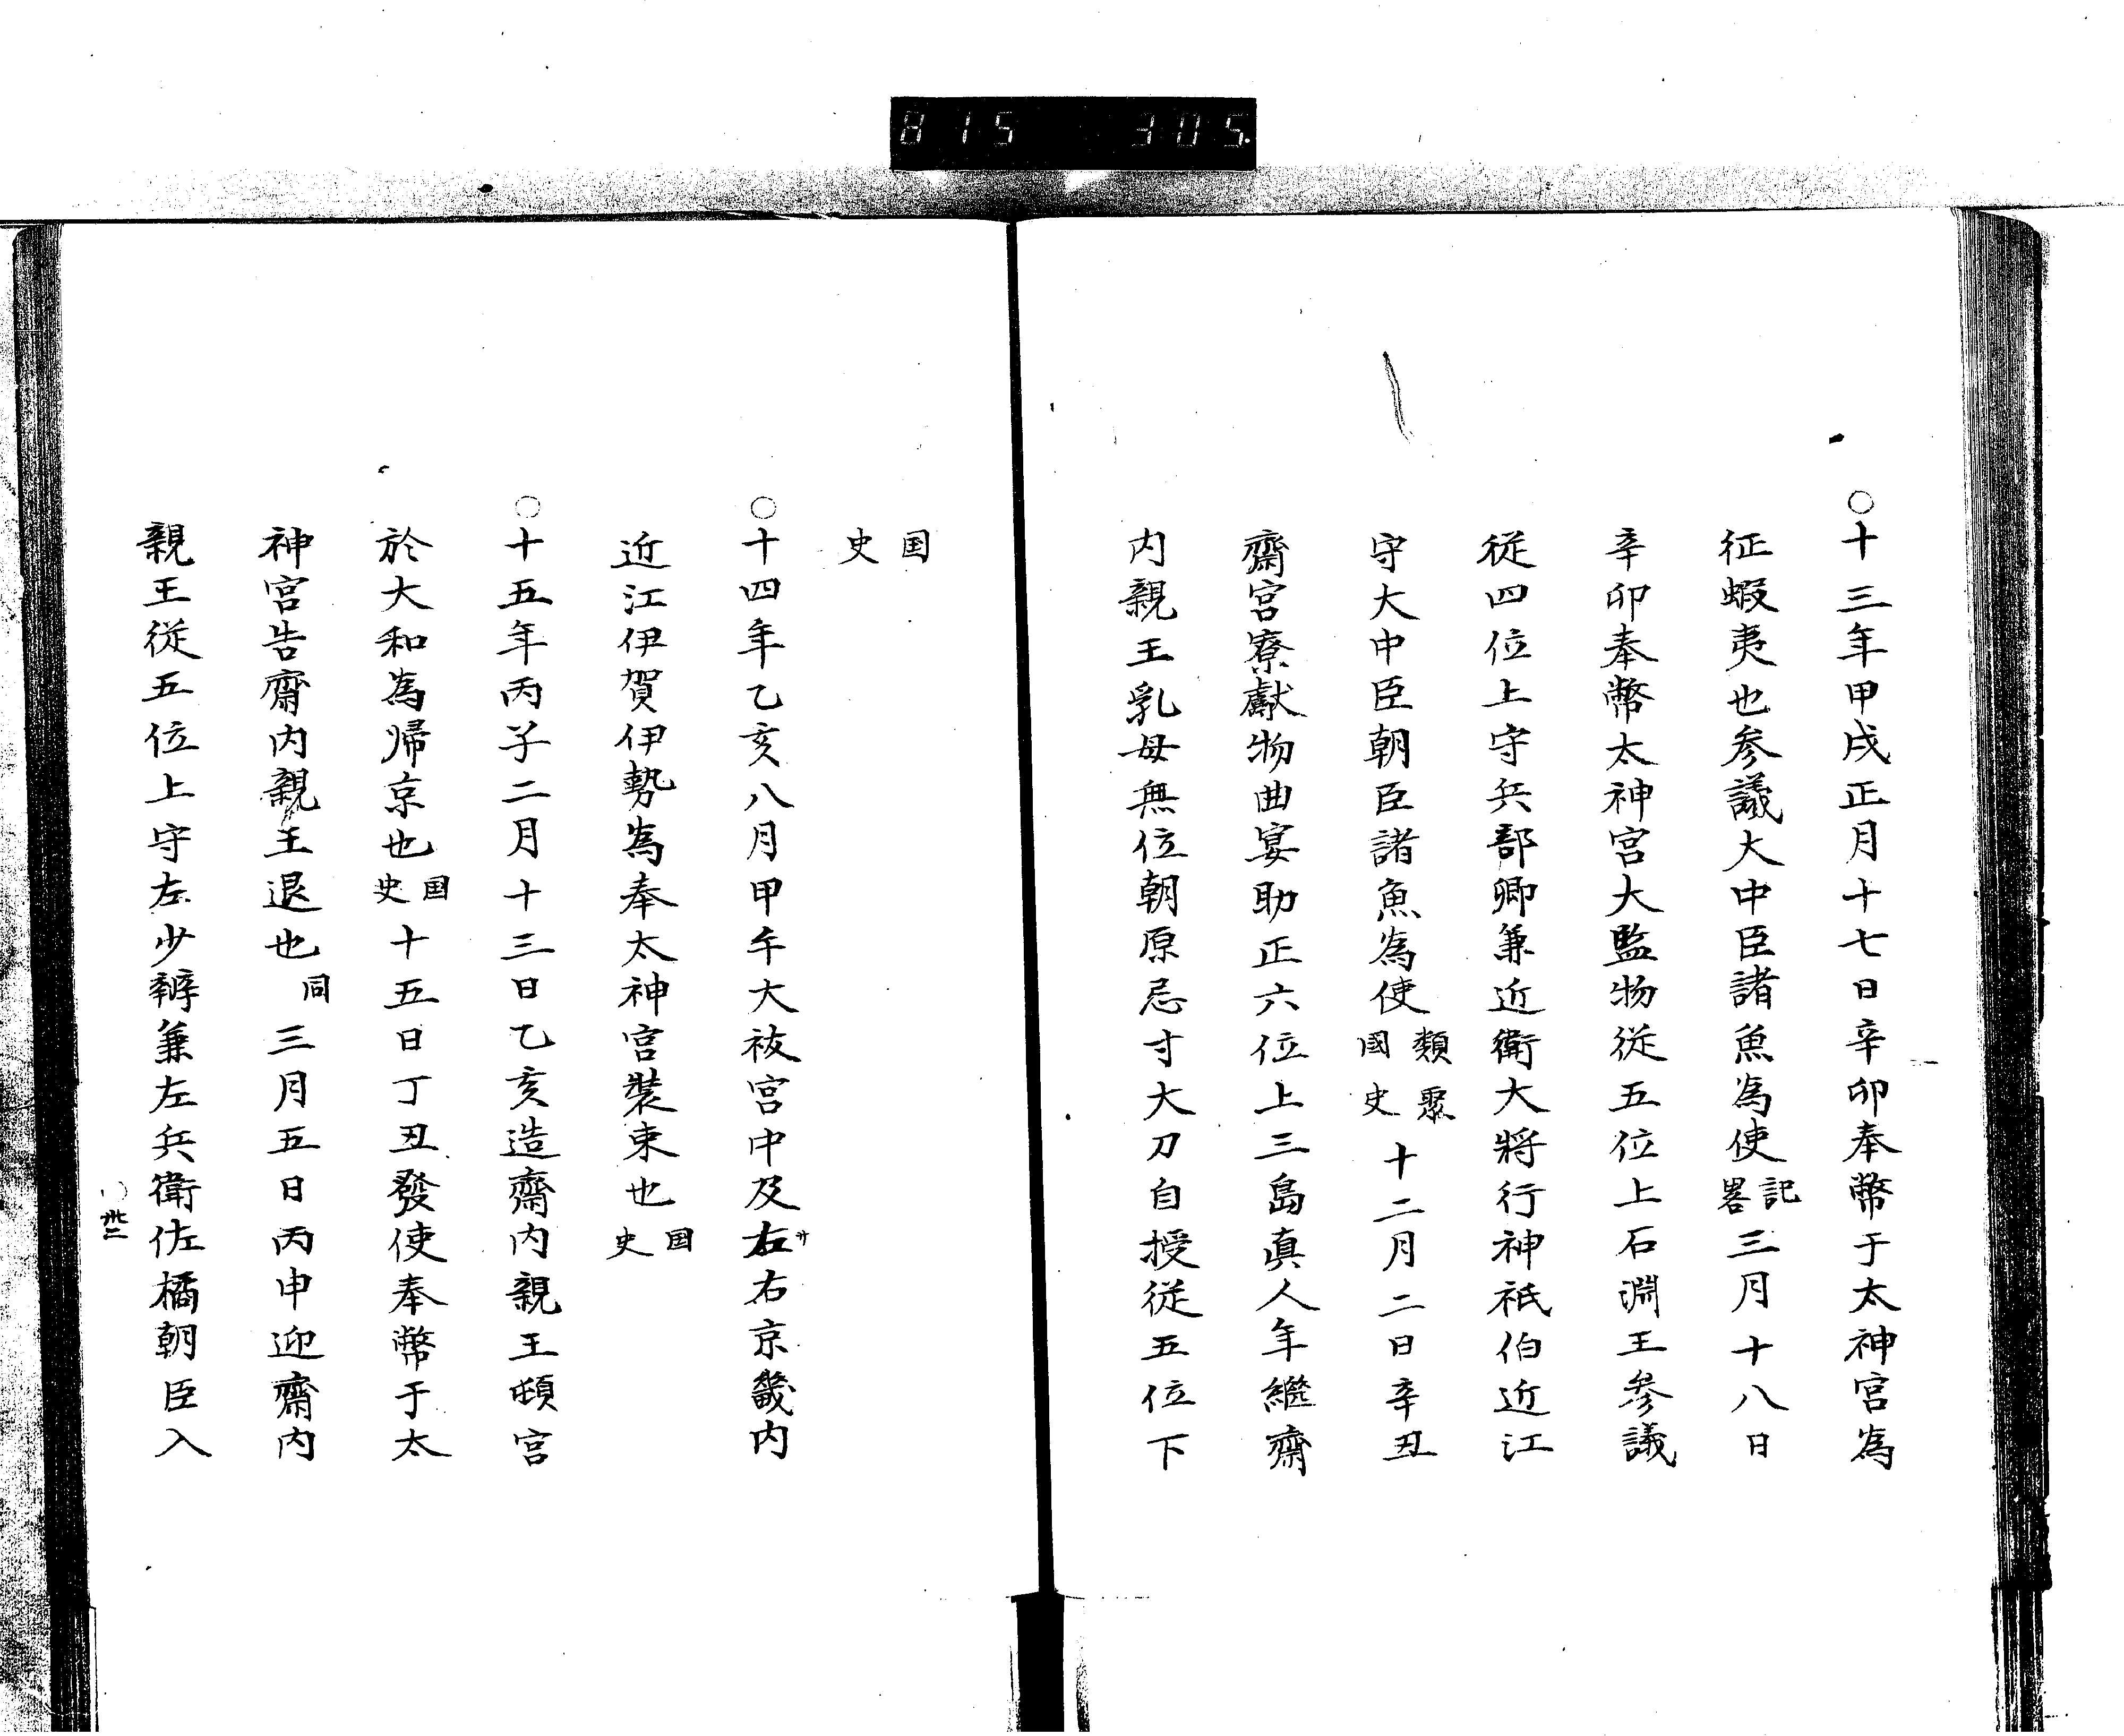 815 305.
○十三年甲戌正月十七日辛卯奉幣于太神宮為
征蝦夷也参議大中臣諸魚為使記畧三月十八日
辛卯奉幣太神宮大監物従五位上石淵王参議
従四位上守兵部卿兼近衛大将行神祇伯近江
守大中臣朝臣諸魚為使類聚國史十二月二日辛丑
齋宮寮獻物曲宴助正六位上三島真人年繼齋
内親王乳母無位朝原忌寸大刀自授従五位下
国史
○十四年乙亥八月甲午大祓宮中及右右京畿内
近江伊賀伊勢為奉太神宮装束也国史
○十五年丙子二月十三日乙亥造齋内親王頓宮
於大和為帰京也国史十五日丁丑發使奉幣于太
神宮告齋内親王退也同三月五日丙申迎齋内
親王従五位上守左少辨兼左兵衛佐橘朝臣入
卅二